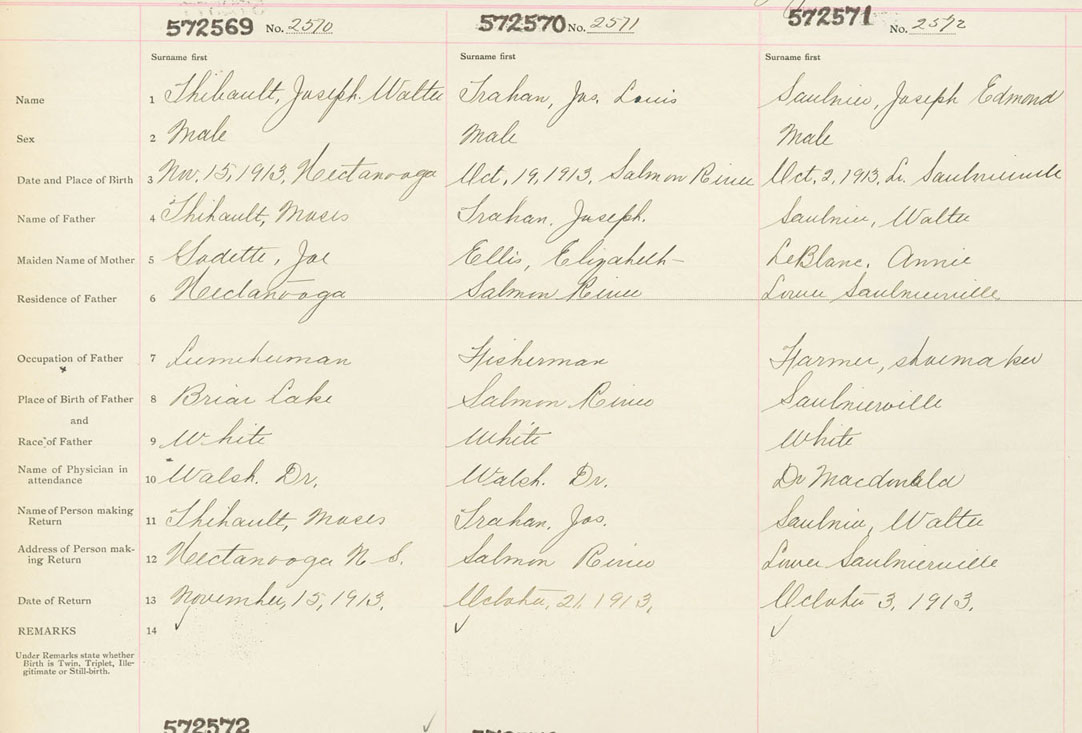 572569 No. 2570 572570 No. 2571 572571 No. 2572
Surname first Surname first Surname first
Name 1 Thibault, Joseph Walter Trahan, Jos. Louis Saulnier, Joseph Edmond
Sex 2 Male Male Male
Date and Place of Birth 3 Nov. 15, 1913, Hectanooga Oct, 19, 1913, Salmon River Oct, 2, 1913, Lr. Saulnierville
Name of Father 4 Thibault, Moses Trahan, Joseph. Saulnier, Walter
Maiden Name of Mother 5 Joe Ellis, Elizabeth LeBlanc, Annie
Residence of Father 6 Hectanooga Salmon River Lower Saulnierville
Occupation of Father 7 Lumberman Fisherman Farmer, shoemaker
Place of Birth of Father 8 Briar Lake Salmon River Saulnierville
and
Race of Father 9 White White White
Name of Physician in
attendance 10 Walsh. Dr. Walsh. Dr. Dr Macdonald
Name of Person making
Return 11 Thibault, Moses Trahan, Jos. Saulnier, Walter
Address of Person mak-
ing Return 12 Hectanooga N-S. Salmon River Lower Saulnierville
Date of Return 13 November, 15, 1913, October, 21, 1913, October 3, 1913,
REMARKS 14
Under Remarks state whether
Birth is Twin, Triplet, Ille-
gitimate or Still-birth.
572572